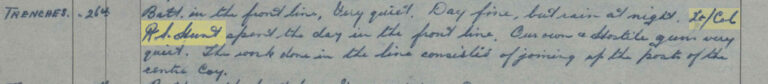 TRENCHES. - 26th Batt. in the front line, Very quiet. Day fine, but rain at night. Lt/Col
R.S. Hunt spent the day in the front line. Our own & Hostile guns very
quiet. The work done in the line consisted of joining up the posts of the
centre Coy.